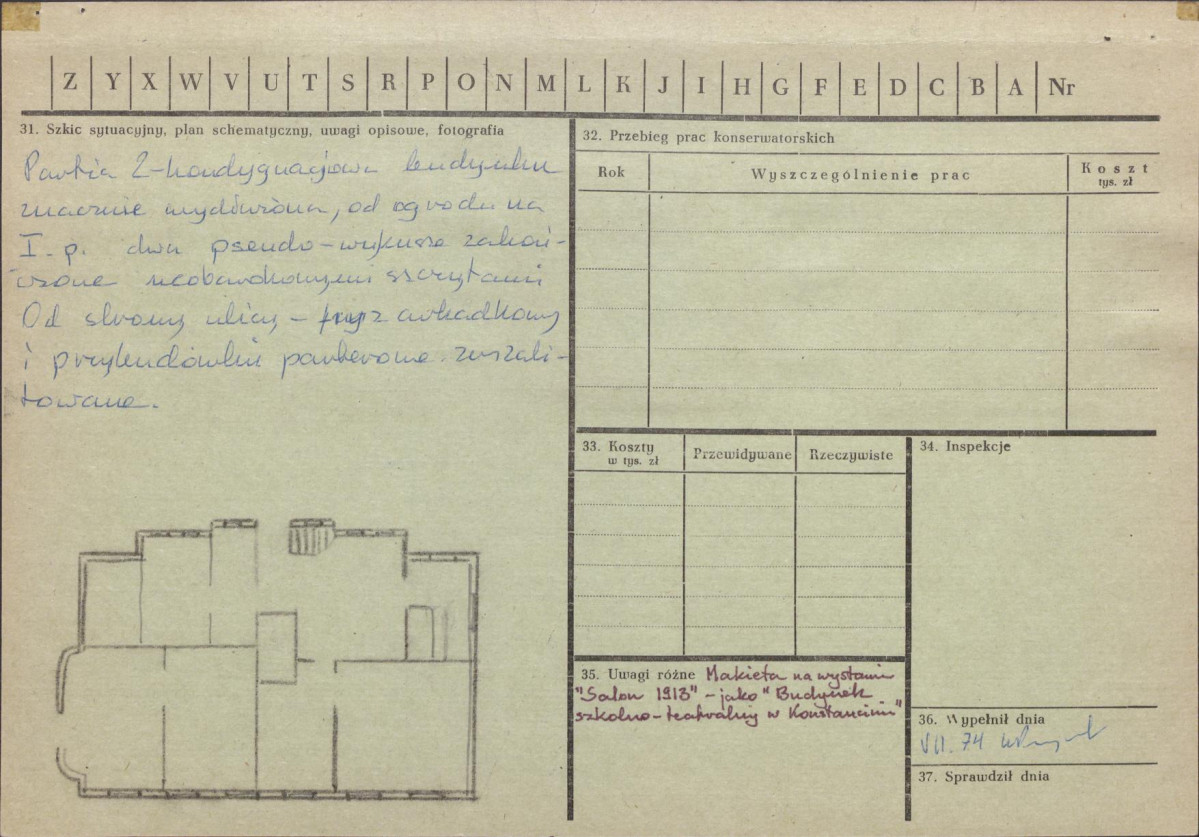 Z Y X W V U T S R P O N M L K J I H G F E D C B A Nr
31. Szkic sytuacyjny, plan schematyczny, uwagi opisowe, fotografia
Partia 2-kondygnacjowa budynku
znacznie wydłużona, od ogrodu na
I. p. dwa pseudo-wykusze zakoń-
czone neobarokowymi szczytami
Od strony ulicy - arkadkowy
i przybudówki parterowe zeszali-
towane.
32. Przebieg prac konserwatorskich
Rok
Wyszczególnienie prac
Koszt
tys. zł
33. Koszty
w tys. zł
Przewidywane
Rzeczywiste
34. Inspekcje
35. Uwagi różne Makieta na wystawie
"Salon 1913" - jako "Budynek
szkolno-teatralny w Konstancinie"
36. Wypełnił dnia
VII. 74
37. Sprawdził dnia